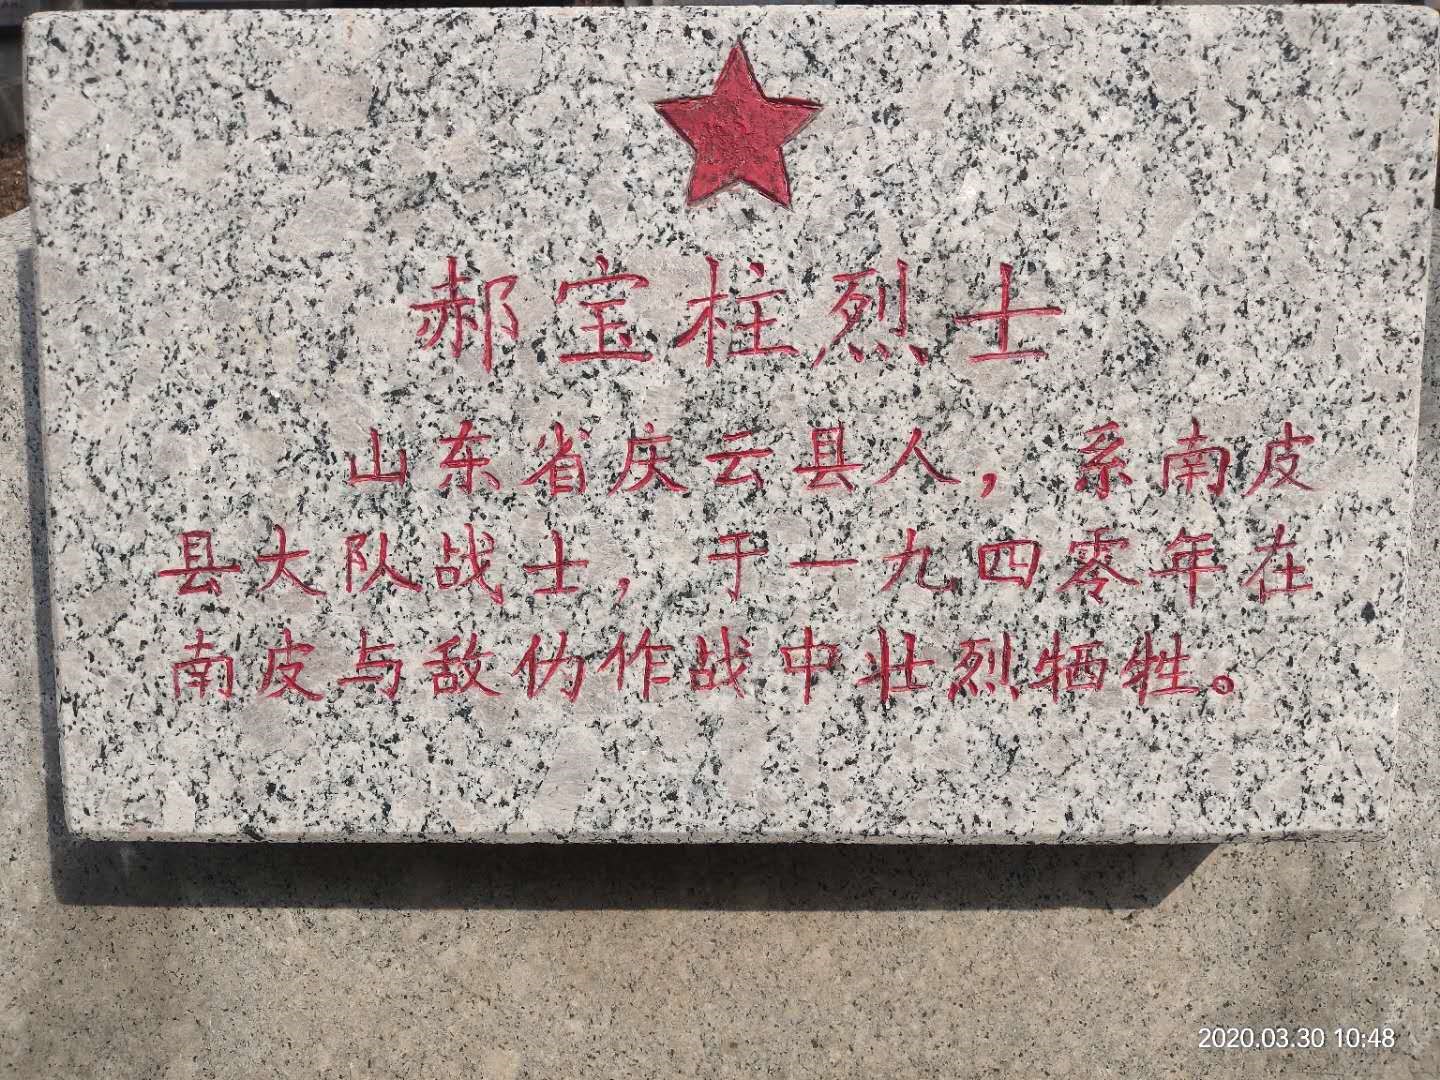 郝宝柱烈士
山东省庆云县人，系南皮
县大队战士，于一九四零年在
南皮与敌伪作战中壮烈牺牲。
2020.03.30 10:48